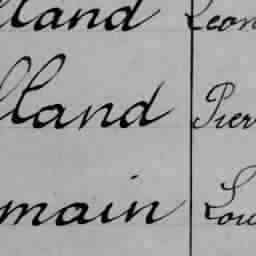 lland Leon
lland Pier
main Lou